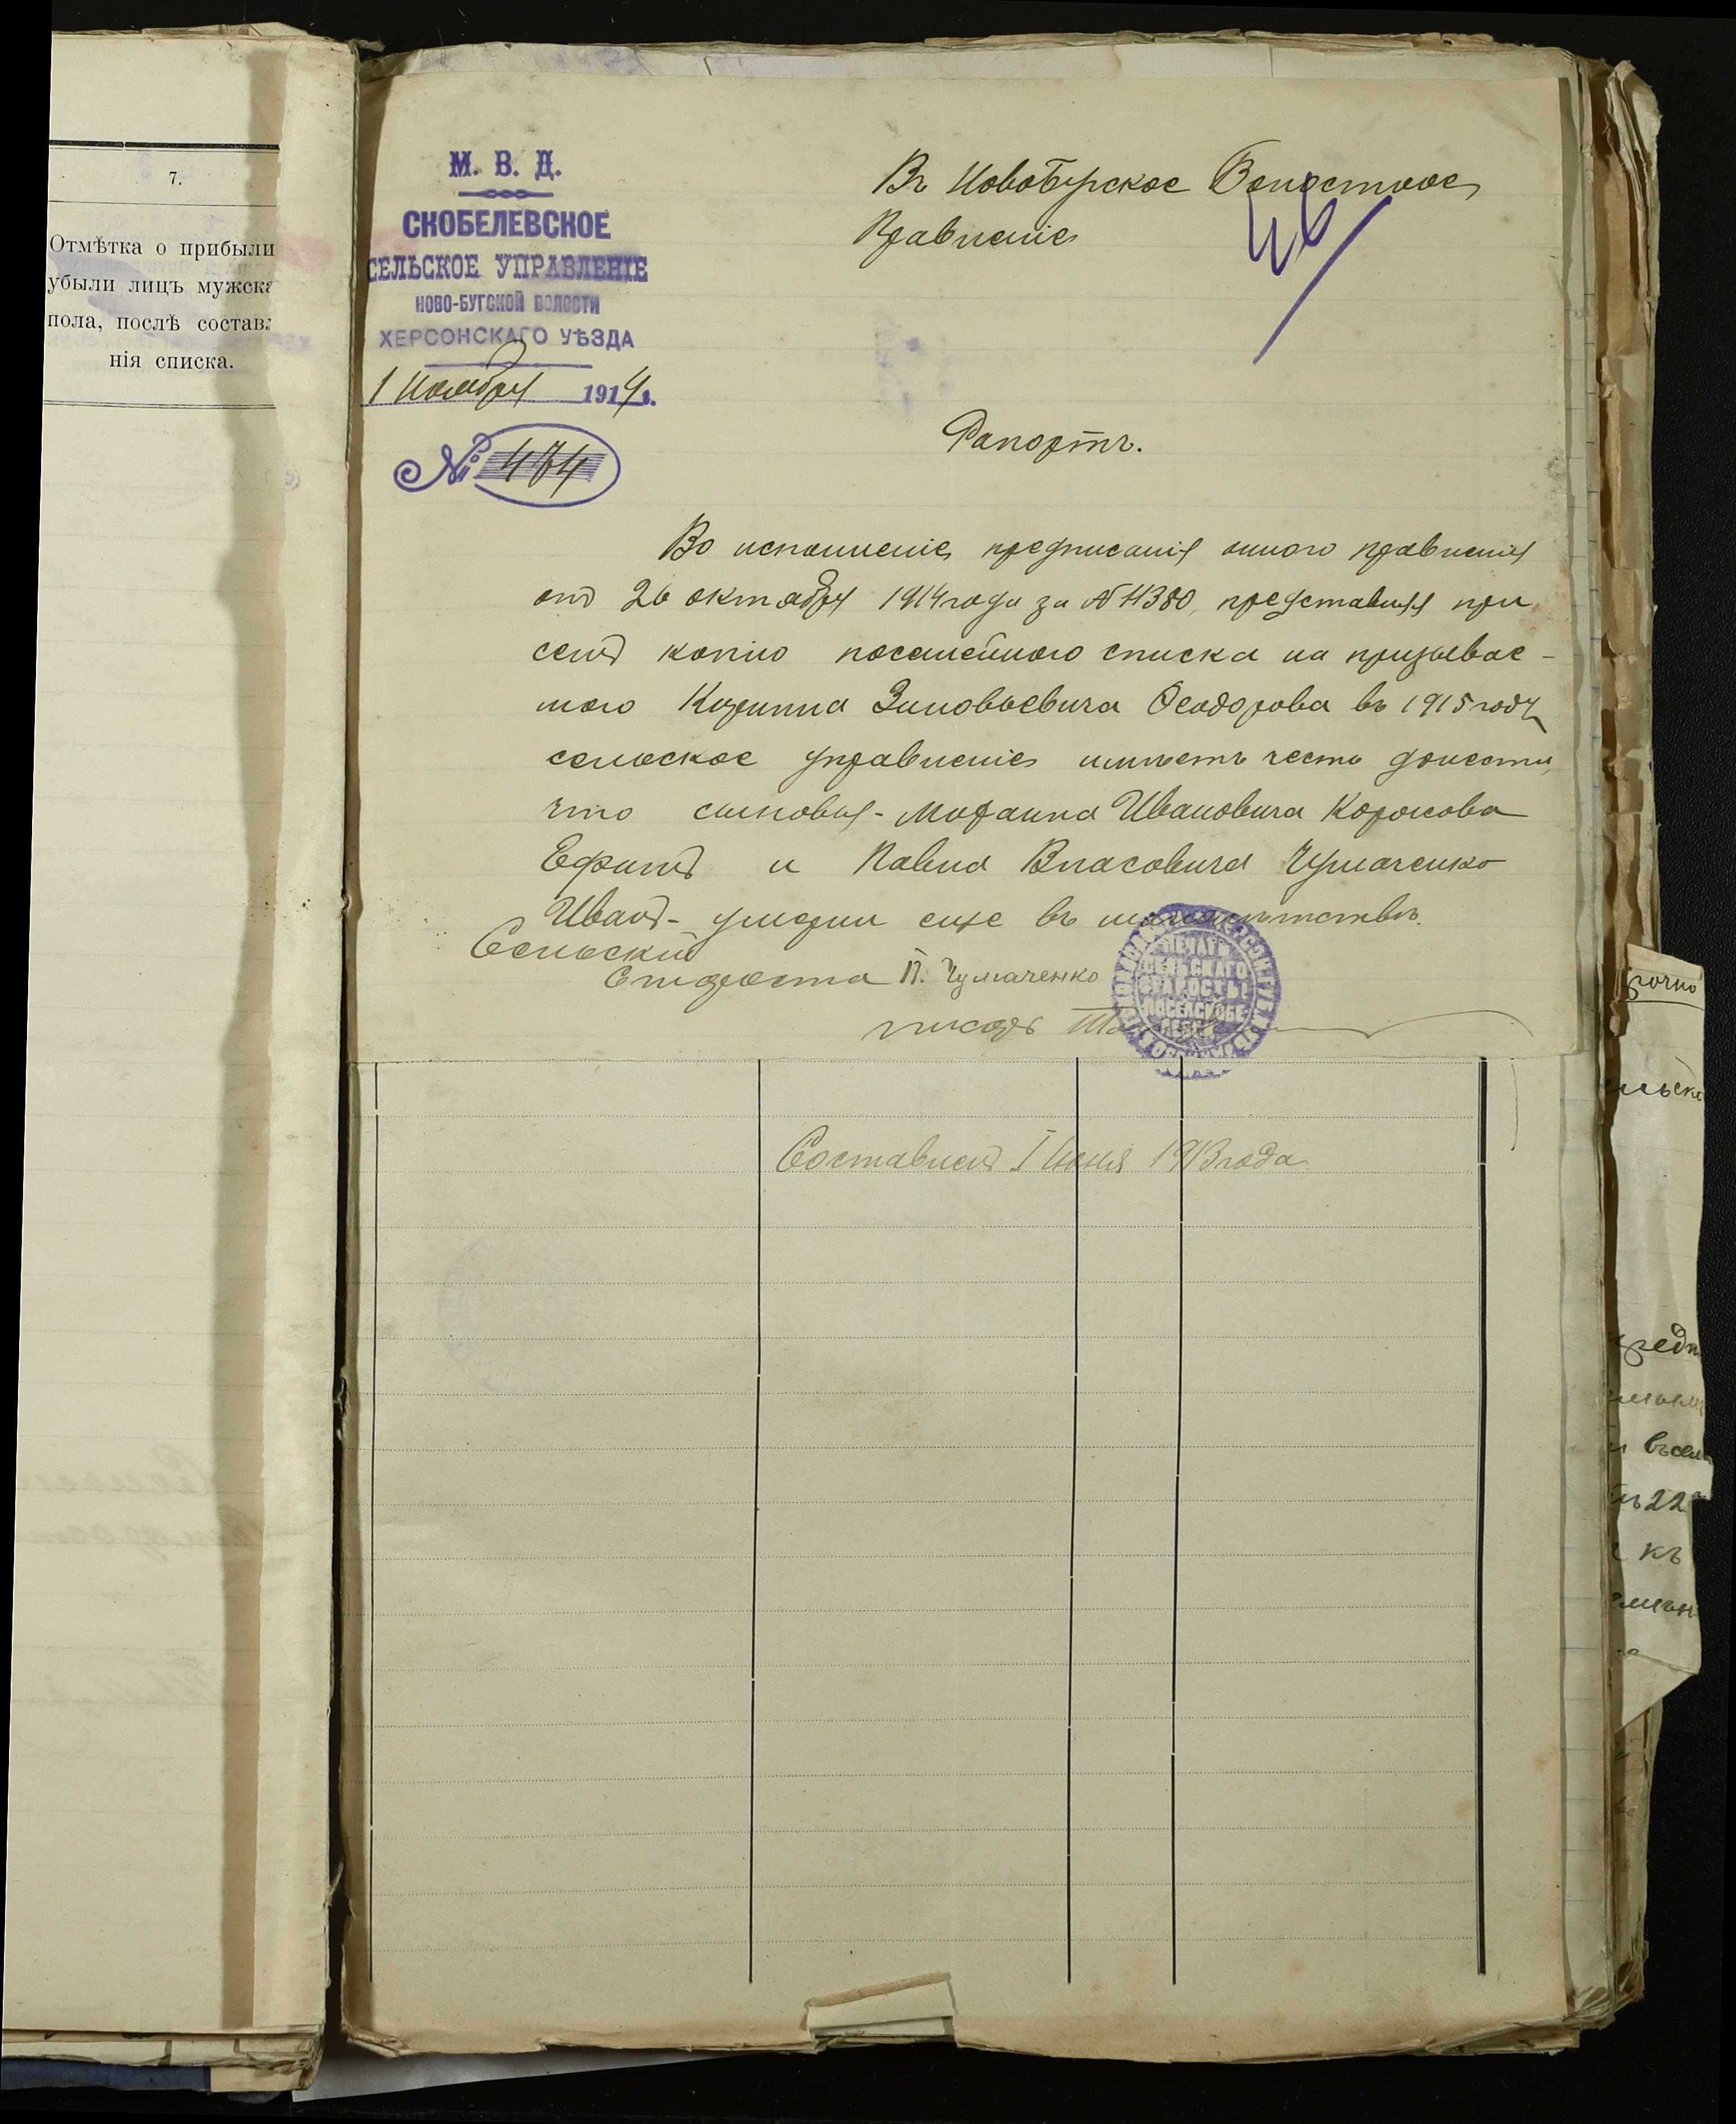 7.
Отмѣтка о прибыли
убыли лицъ мужска
пола, послѣ состав
нія списка.
М. В. Д.
СКОБЕЛЕВСКОЕ
СЕЛЬСКОЕ УПРАВЛЕНІЕ
НОВО-БУГСКОЙ ВОЛОСТИ
ХЕРСОНСКАГО УѢЗДА
1 Ноября 1914 г.
№ 474
Въ Новобугское Волостное
Правленіе
46
Рапортъ.
Во исполненіе предписанія онного правленія
отъ 26 октября 1914 года за № 11380, представляя при
семъ копію посемейного списка на призывае-
мого Кирилла Зиновьевича Ѳеодорова въ 1915 году
сельское управленіе имѣетъ честь донести,
что сыновья - Михаила Ивановича
Ефимъ и Павла Власовича Чумаченко
Иванъ - умерли еще въ малолѣтствѣ.
Сельскій
Староста П. Чумаченко
писарь
ПЕЧАТЬ
СЕЛЬСКАГО
СТАРОСТЫ
Составленъ 1 Июня 1913 года
рочно
ельско
предп
22
къ